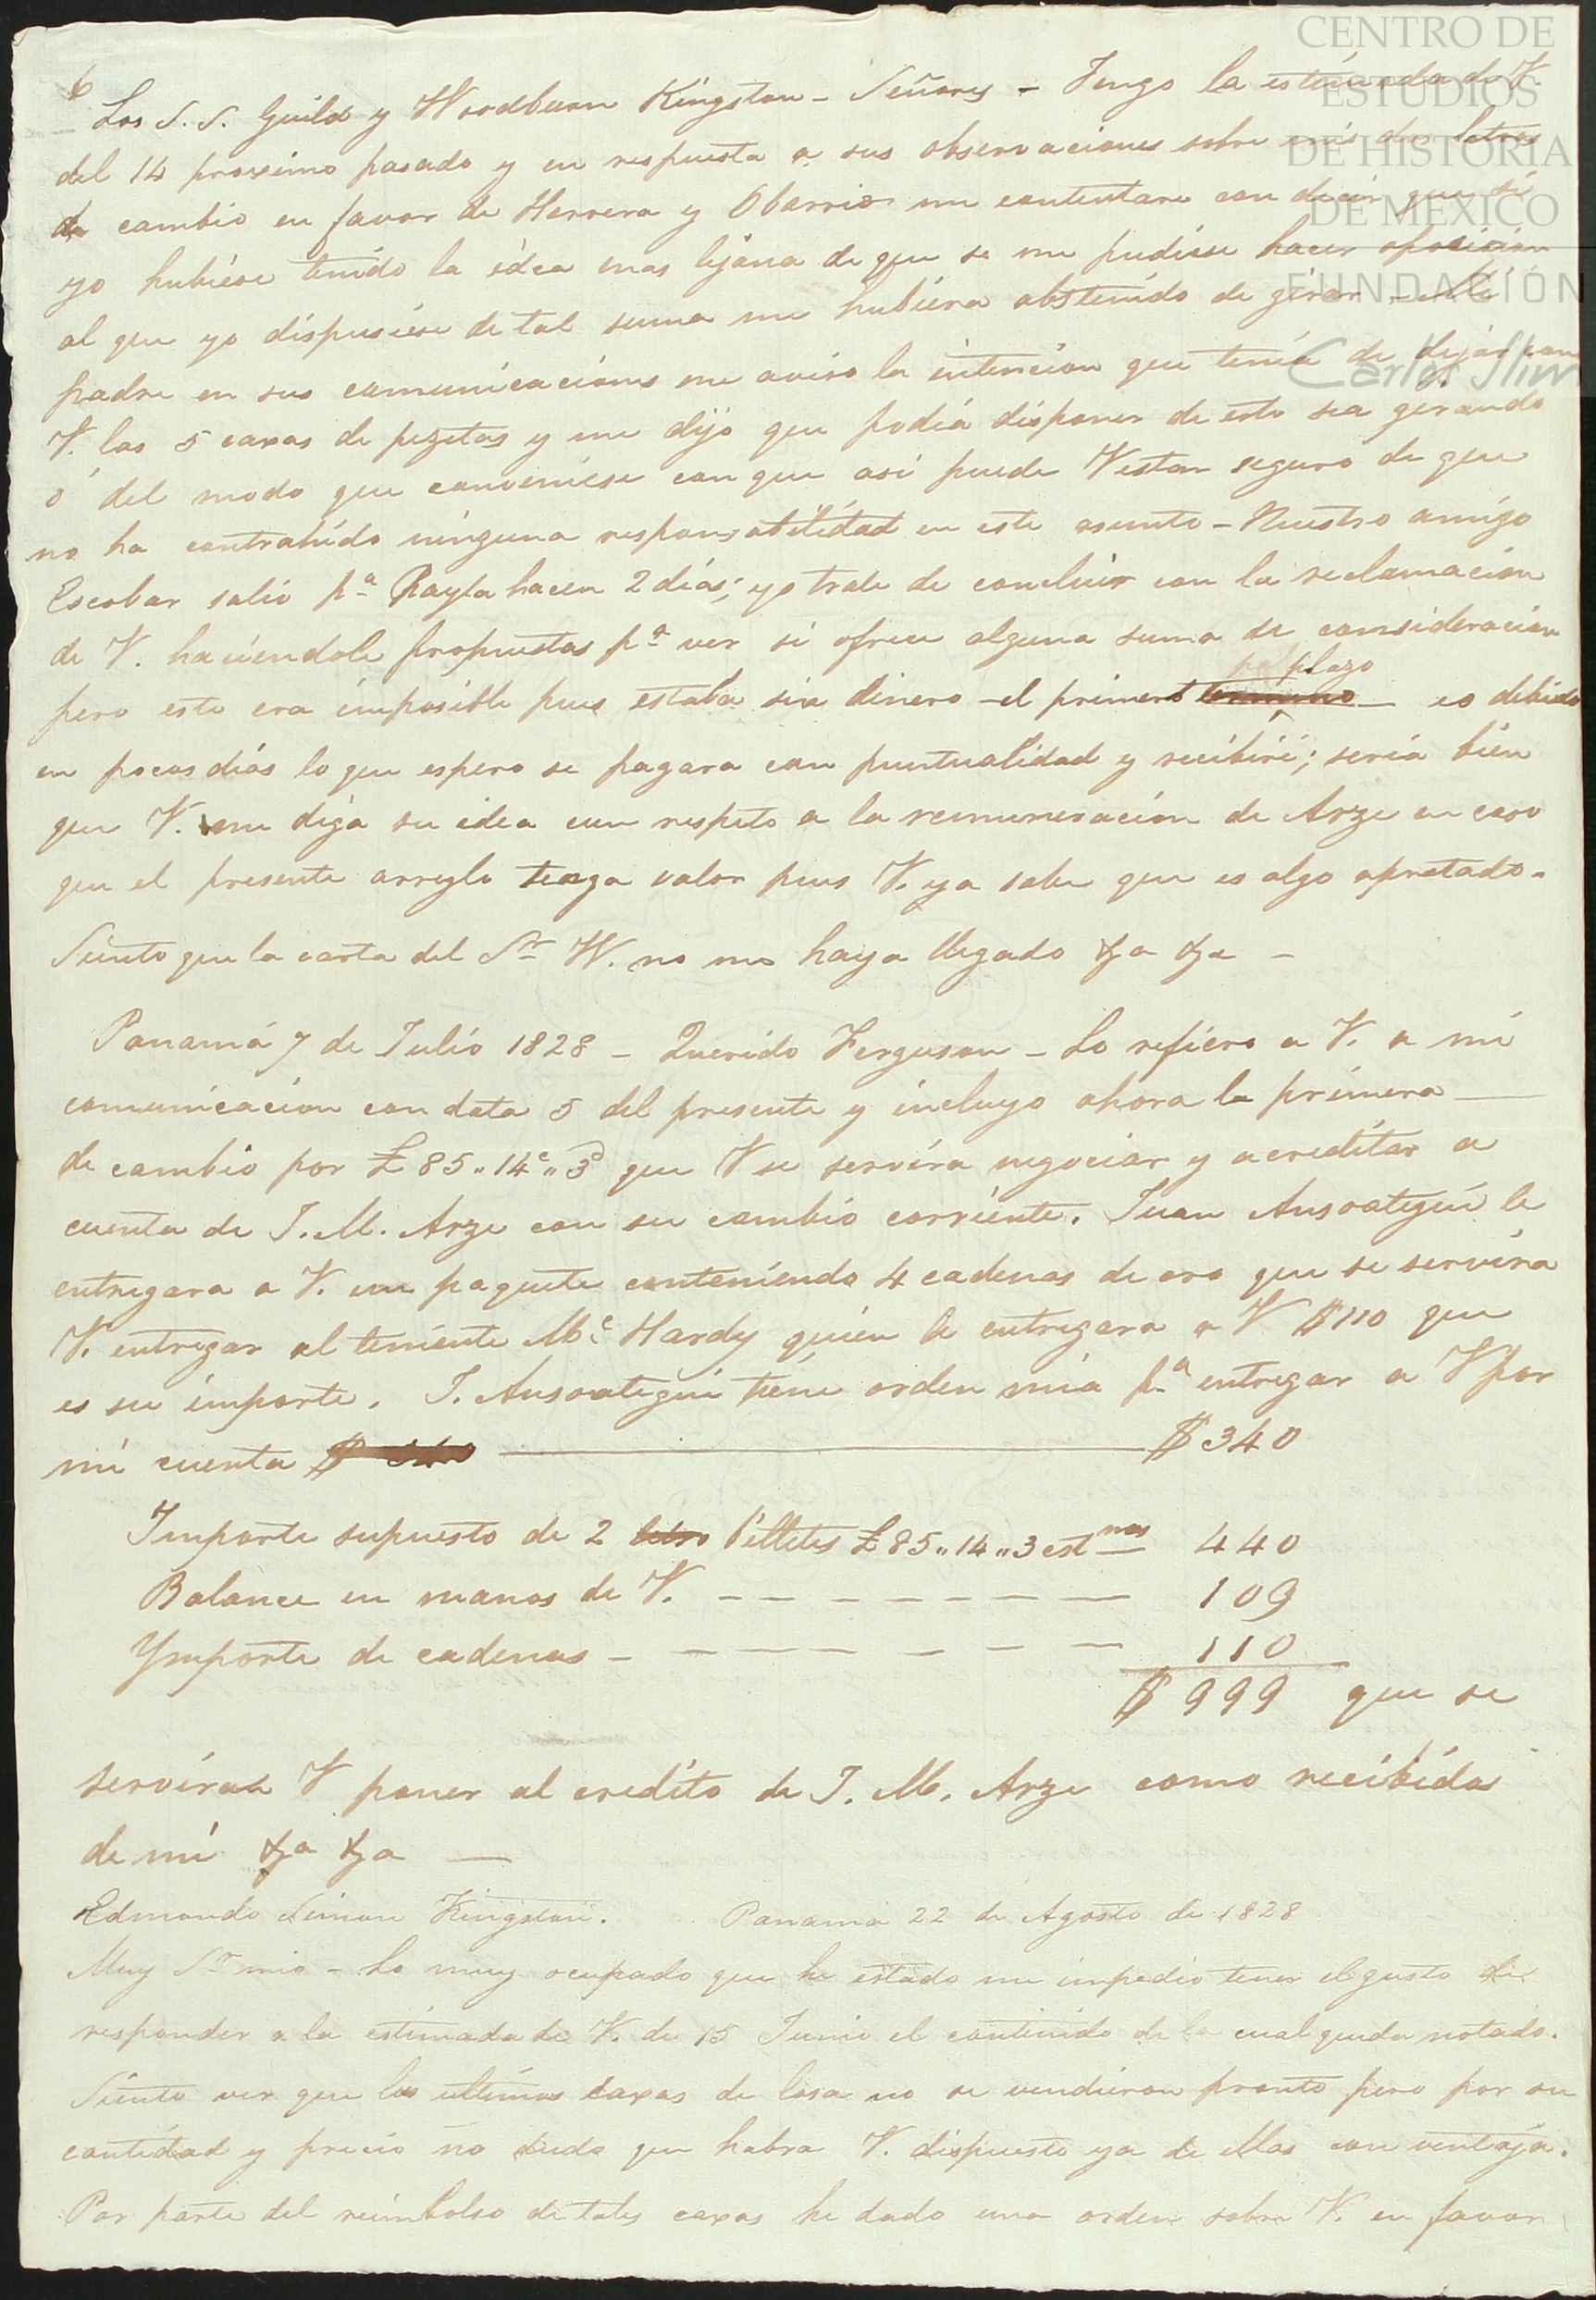 CENTRO DE
ESTUDIOS
DE HISTORIA
DE MEXICO
FUNDACIÓN
Carlos Slim
6
Los S. S. Guild y Woodburn Kingston - Señores - Tengo la estimada de V.
del 14 proximo pasado y en respuesta a sus observaciones sobre mis dos letras
de cambio en favor de Herrera y Obarrio me contentare con decir que si
yo hubiese tenido la idea mas lejana de que se me pudiese hacer oposicion
al que yo dispusiese de tal suma me hubiera abstenido de girar - Mi
padre en sus comunicaciones me aviso la intencion que tenia de dejar con
V. las 5 caxas de pezetas y me dijo que podia disponer de esto sea girando
ó del modo que conviniese con que asi puede V estar seguro de que
no ha contrahido ninguna responsabilidad en este asunto - Nuestro amigo
Escobar salio pa. Payta hacen 2 dias; yo trate de concluir con la reclamacion
de V. haciendole propuestas pa. ver si ofrece alguna suma de consideracion
pero esto era imposible pues estaba sin dinero - el primero plazo es debido
en pocos dias lo que espero se pagara con puntualidad y recibiré; seria bien
que V. me diga su idea con respeto a la remuneracion de Arze en caso
que el presente arreglo tenga valor pues V. ya sabe que es algo apretado -
Siento que la carta del Sr W. no me haya llegado &a &a -
Panamá 7 de Julio 1828 - Querido Ferguson - Lo refiero a V. a mi
comunicacion con data 5 del presente y incluyo ahora la primera —
de cambio por £ 85 " 14 " 3 que V se servira negociar y acreditar a
cuenta de J. M. Arze con su cambio corriente. Juan Ansoategui le
entregara a V. un paquete conteniendo 4 cadenas de oro que se servira
V. entregar al teniente Mc Hardy quien le entregara a V $110 que
es su importe. J. Ansoategui tiene orden mia pa. entregar a V por
mi cuenta $ 340 — $ 340
Importe supuesto de 2 billetes £ 85 " 14 " 3 estnas — 440
Balance en manos de V. - - - - - - - - 109
Ymporte de cadenas - - - - - - - - 110
$ 999 que se
servira V poner al credito de J. M. Arze como recibidas
de mi &a &a —
Edmondo Simon Kingston. Panama 22 de Agosto de 1828
Muy Sr mio - Lo muy ocupado que he estado me impedio tener el gusto de
responder a la estimada de V. de 15 Junio el contenido de la cual queda notado.
Siento ver que las ultimas caxas de losa no se vendieron pronto pero por su
cantidad y precio no dudo que habra V. dispuesto ya de ellas con ventaja.
Por parte del reimbolso de tales caxas he dado una orden sobre V. en favor